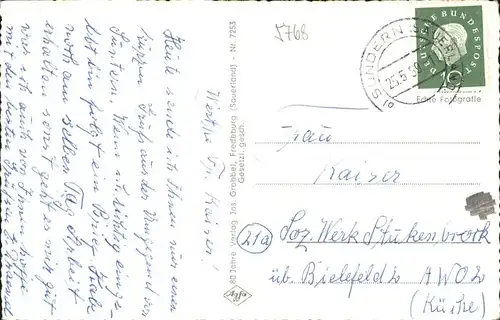 5768
SUNDERN
25.5.59
DEUTSCHE BUNDESPOST
10
Echte Fotografie
Werte Fr. Kaiser!
Heute sende ich Ihnen nun einen
Gruß aus der Umgegend von
Sundern. Wenn ich richtig einge-
lebt bin folgt ein Brief. Habe
noch am selben Tag Arbeit
erhalten sonst geht es mir gut
was ich auch von Ihnen hoffe
mit den besten Grüßen
80 Jahre Verlag Jos. Grobbel, Fredeburg (Sauerland) - Nr. 7253
Gesetzl. gesch.
Agfa
Frau
Kaiser
21a
Soz. Werk Stukenbrock
üb. Bielefeld 2 AWO2
(Küche)